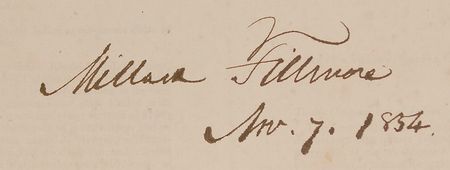 Millard Fillmore
Nov. 7. 1854.